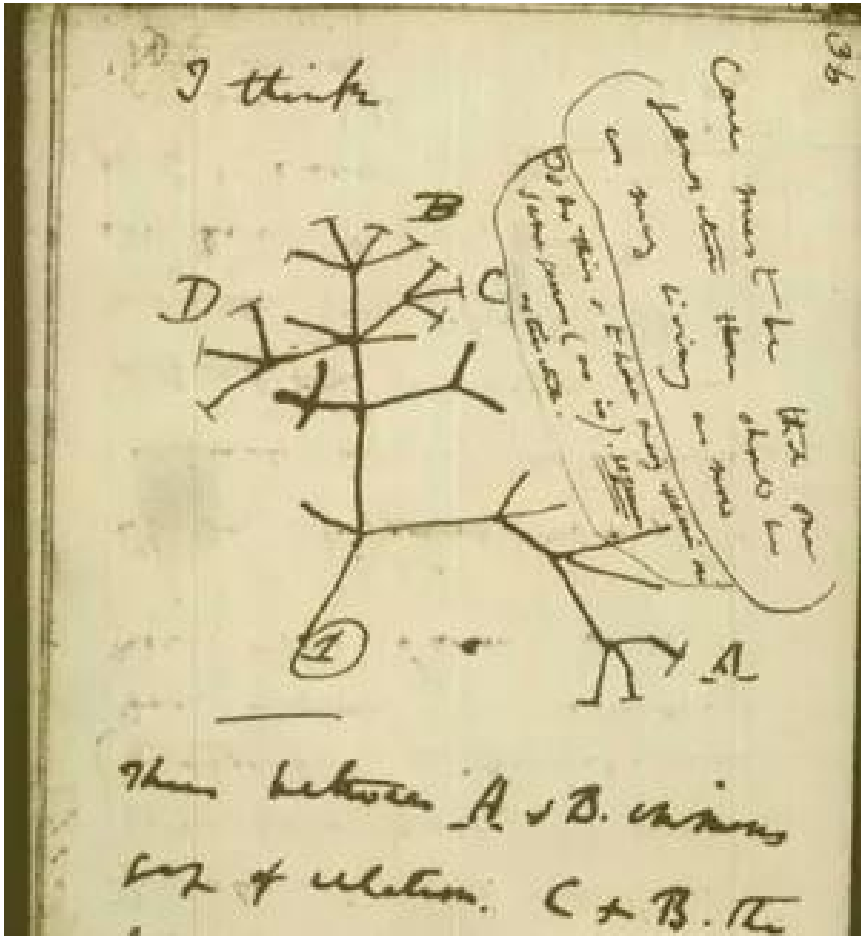 36
I think
Case must be that one
generation then should be
as many living as now
To do this & to have many species in
same genus (as is). requires
extinction.
B
C
D
1
A
Thus between A & B. immens
gap of relation. C & B. the